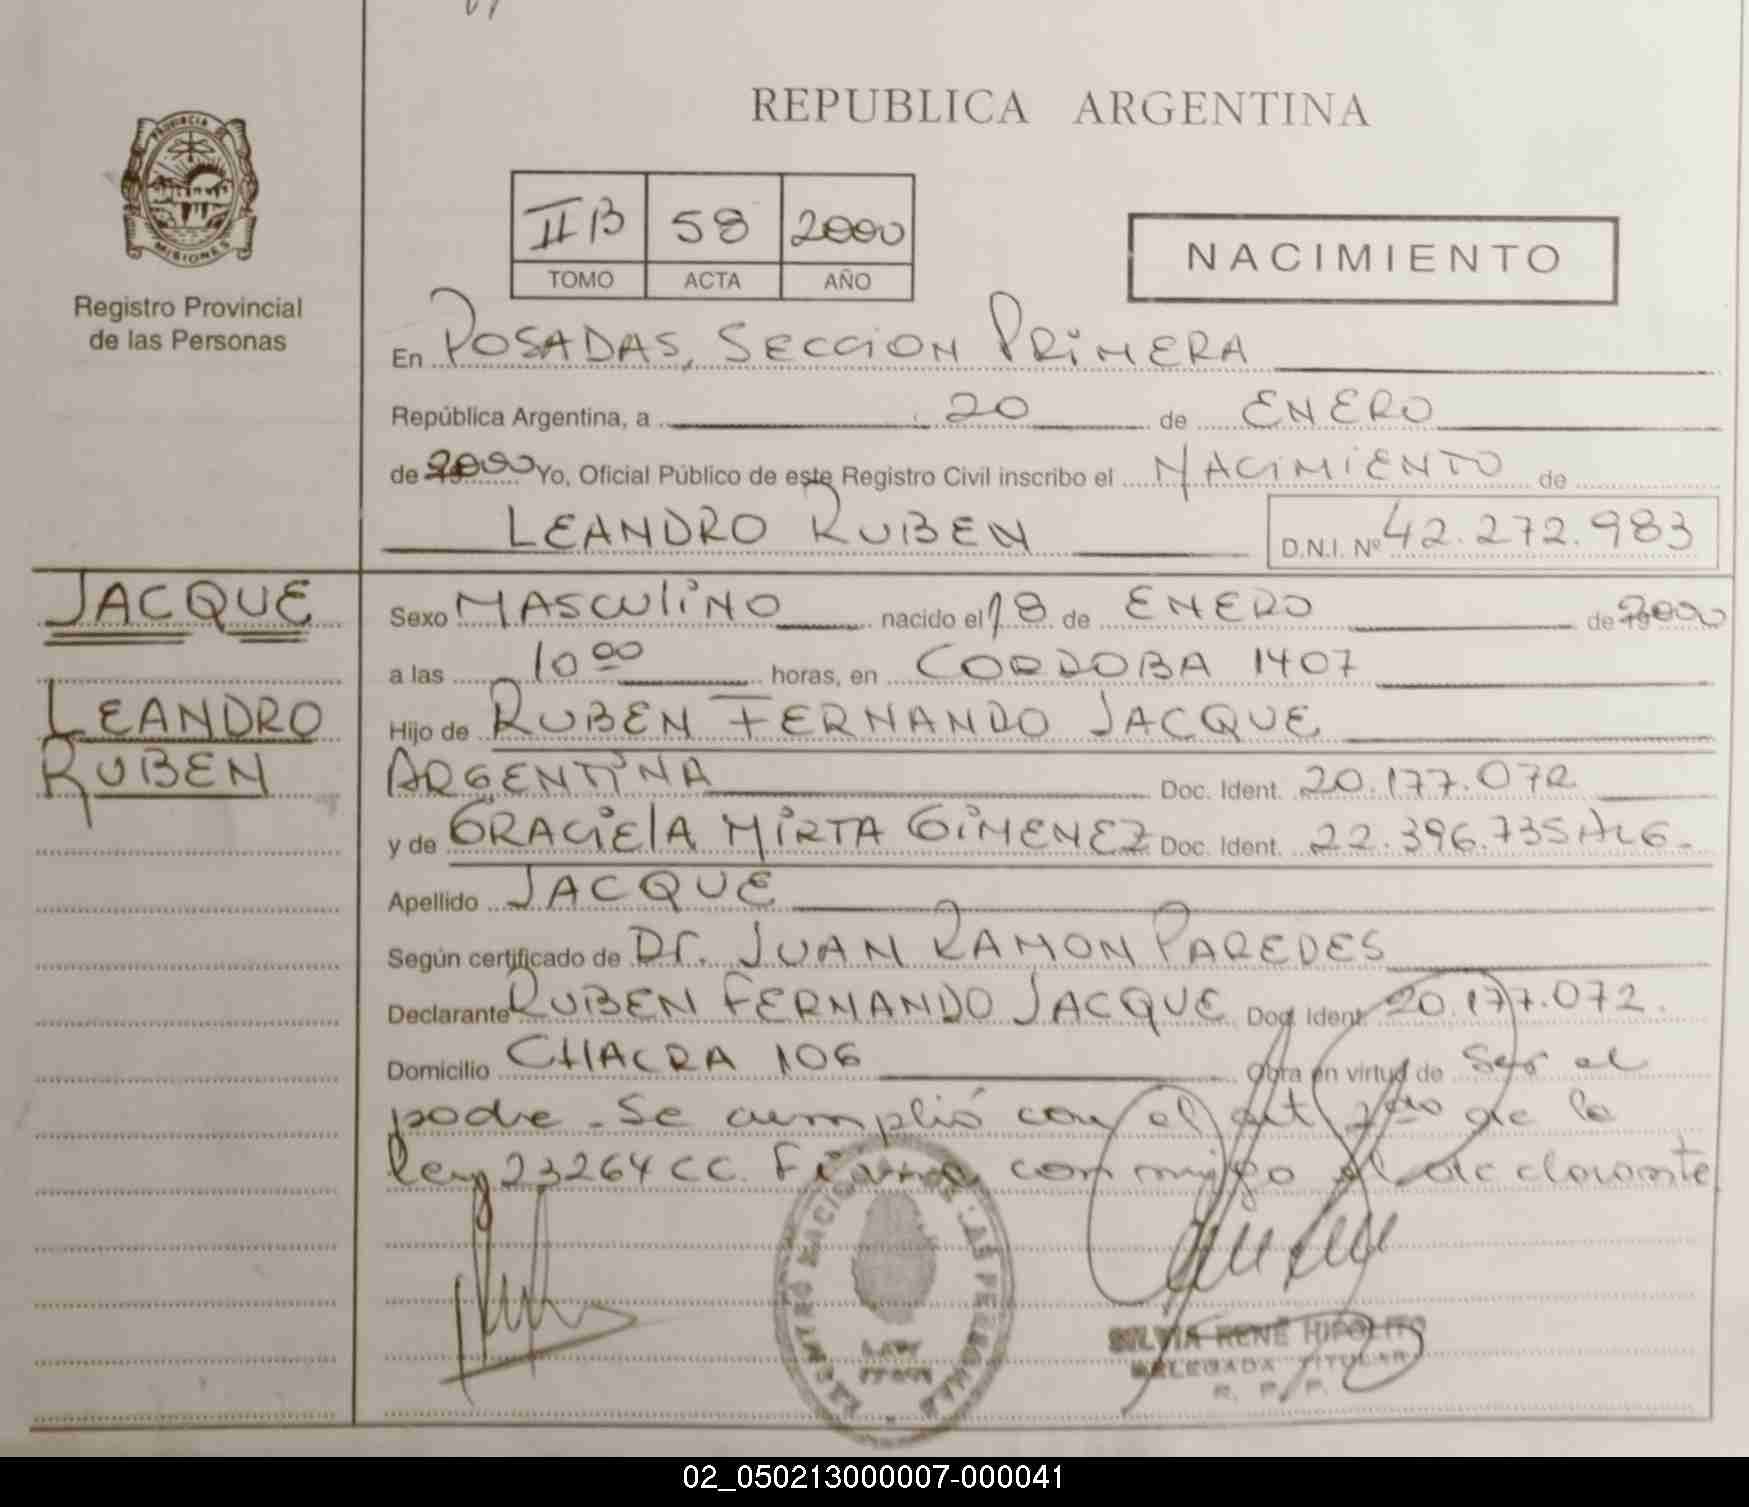 REPUBLICA ARGENTINA
PROVINCIA DE
MISIONES
Registro Provincial
de las Personas
IIB 58 2000
TOMO ACTA AÑO
NACIMIENTO
En POSADAS, SECCION PRIMERA
República Argentina, a 20 de ENERO
de 2000 Yo, Oficial Público de este Registro Civil inscribo el NACIMIENTO de
LEANDRO RUBEN D.N.I. Nº 42.272.983
JACQUE
LEANDRO
RUBEN
Sexo MASCULINO nacido el 18 de ENERO de 2000
a las 10 00 horas, en CORDOBA 1407
Hijo de RUBEN FERNANDO JACQUE
ARGENTINA Doc. Ident. 20.177.072
y de GRACIELA MIRTA GIMENEZ Doc. Ident. 22.396.735 ARG.
Apellido JACQUE
Según certificado de Dr. JUAN RAMON PAREDES
Declarante RUBEN FERNANDO JACQUE Doc. Ident. 20.177.072.
Domicilio CHACRA 106 Obra en virtud de ser el
padre. Se cumplió con el art 2do de la
ley 23264 CC. Firma conmigo el declarante
SILVIA RENÉ HIPOLITO
DELEGADA TITULAR
R. P. P.
02_050213000007-000041